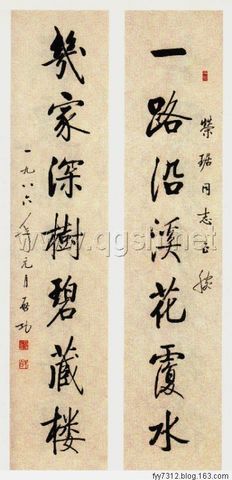 一路沿溪花覆水
荣琚同志正腕
几家深樹碧藏楼
一九八六年元月 啟功
www.qgsh.net
fyy7312.blog.163.com